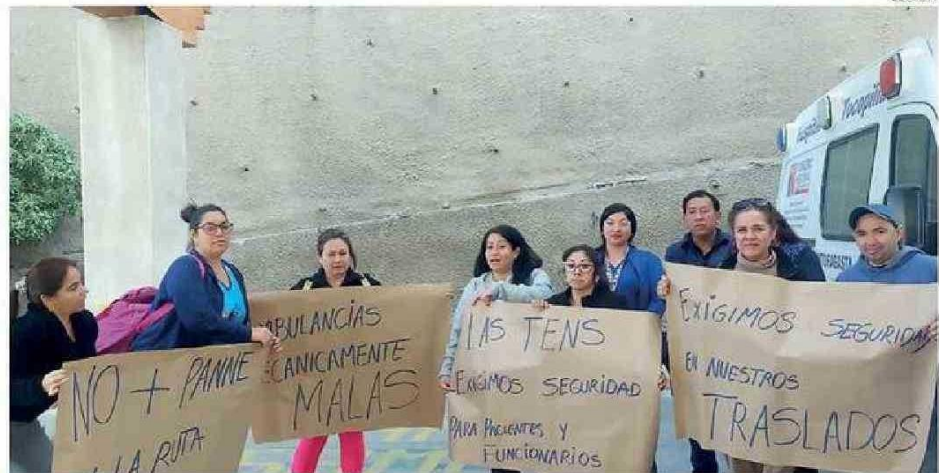 NO + PANNE
LA RUTA
AMBULANCIAS
MECANICAMENTE
MALAS
LAS TENS
EXIGIMOS SEGURIDAD
PARA PACIENTES Y
FUNCIONARIOS
EXIGIMOS SEGURIDAD
EN NUESTROS
TRASLADOS
Hospital Tocopilla